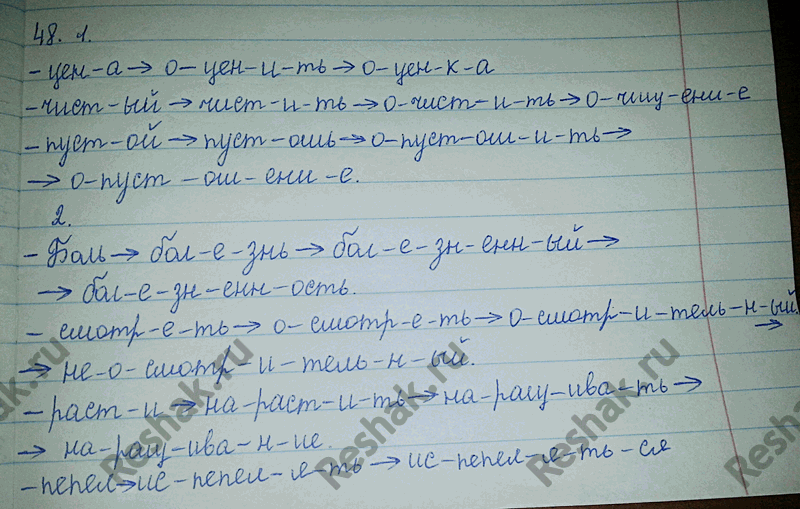 48. 1.
- цен-а → о-цен-и-ть → о-цен-к-а
- чист-ый → чист-и-ть → о-чист-и-ть → о-чищ-ени-е
- пуст-ой → пуст-ошь → о-пуст-ош-и-ть →
→ о-пуст-ош-ени-е.
2.
- Боль → бол-е-знь → бол-е-зн-енн-ый →
→ бол-е-зн-енн-ость.
- смотр-е-ть → о-смотр-е-ть → о-смотр-и-тель-н-ый →
→ не-о-смотр-и-тель-н-ый.
- раст-и → на-раст-и-ть → на-ращ-ива-ть →
→ на-ращ-ива-н-ие.
- пепел → ис-пепел-я-ть → ис-пепел-я-ть-ся
Reshak.ru
Reshak.ru
Reshak.ru
Reshak.ru